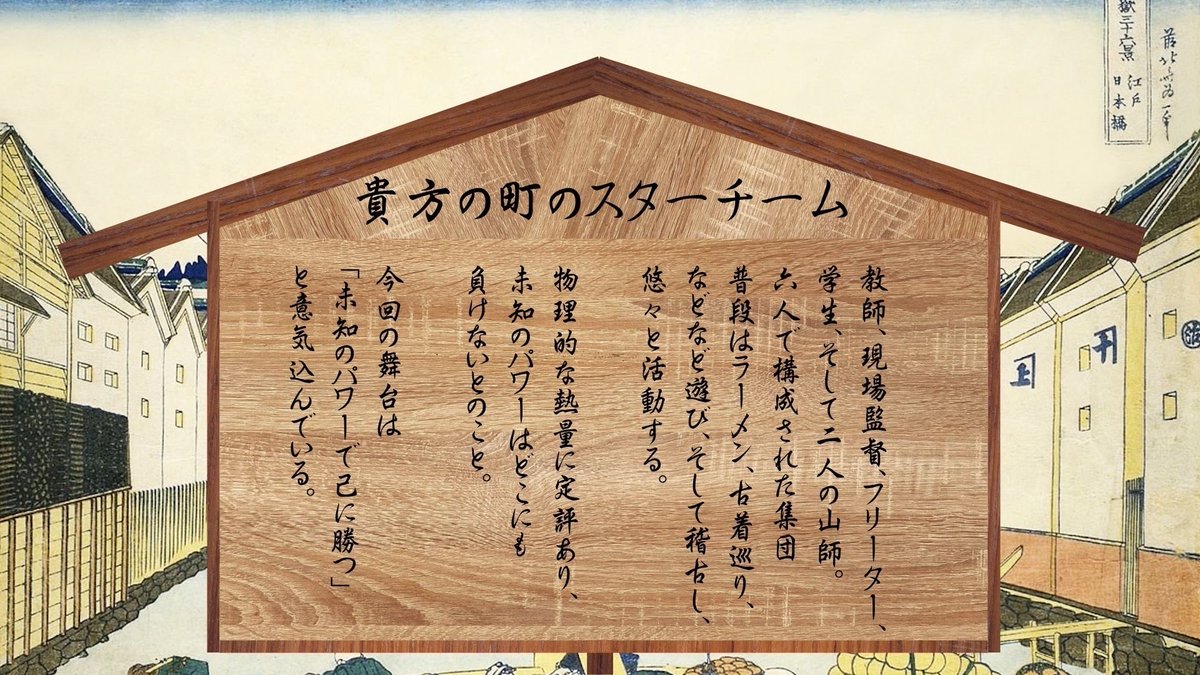 貴方の町のスターチーム
教師、現場監督、フリーター、
学生、そして二人の山師。
六人で構成された集団
普段はラーメン、古着巡り、
などなど遊び、そして稽古し、
悠々と活動する。
物理的な熱量に定評あり、
未知のパワーはどこにも
負けないとのこと。
今回の舞台は
「未知のパワーで己に勝つ」
と意気込んでいる。
嶽三十六景
江戸
日本橋